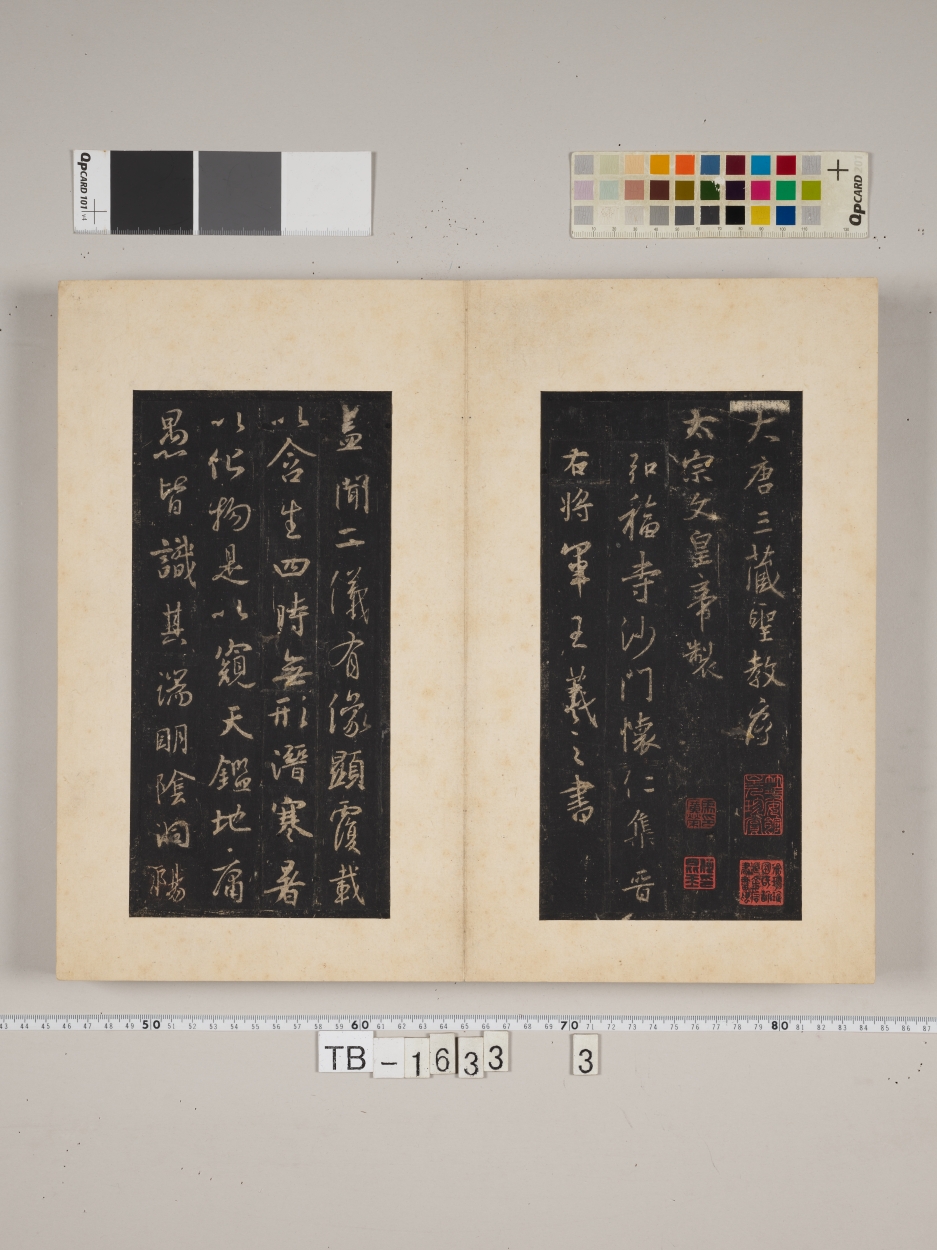 大唐三藏聖教序
太宗文皇帝製
弘福寺沙門懷仁集晉
右將軍王羲之書
蓋聞二儀有像顯覆載
以含生四時無形潛寒暑
以化物是以窺天鑑地庸
愚皆識其端明陰洞陽
QpCARD 101 v4
QpCARD 201
43 44 45 46 47 48 49 50 51 52 53 54 55 56 57 58 59 60 61 62 63 64 65 66 67 68 69 70 71 72 73 74 75 76 77 78 79 80 81 82 83 84 85 86 87
TB-1633 3